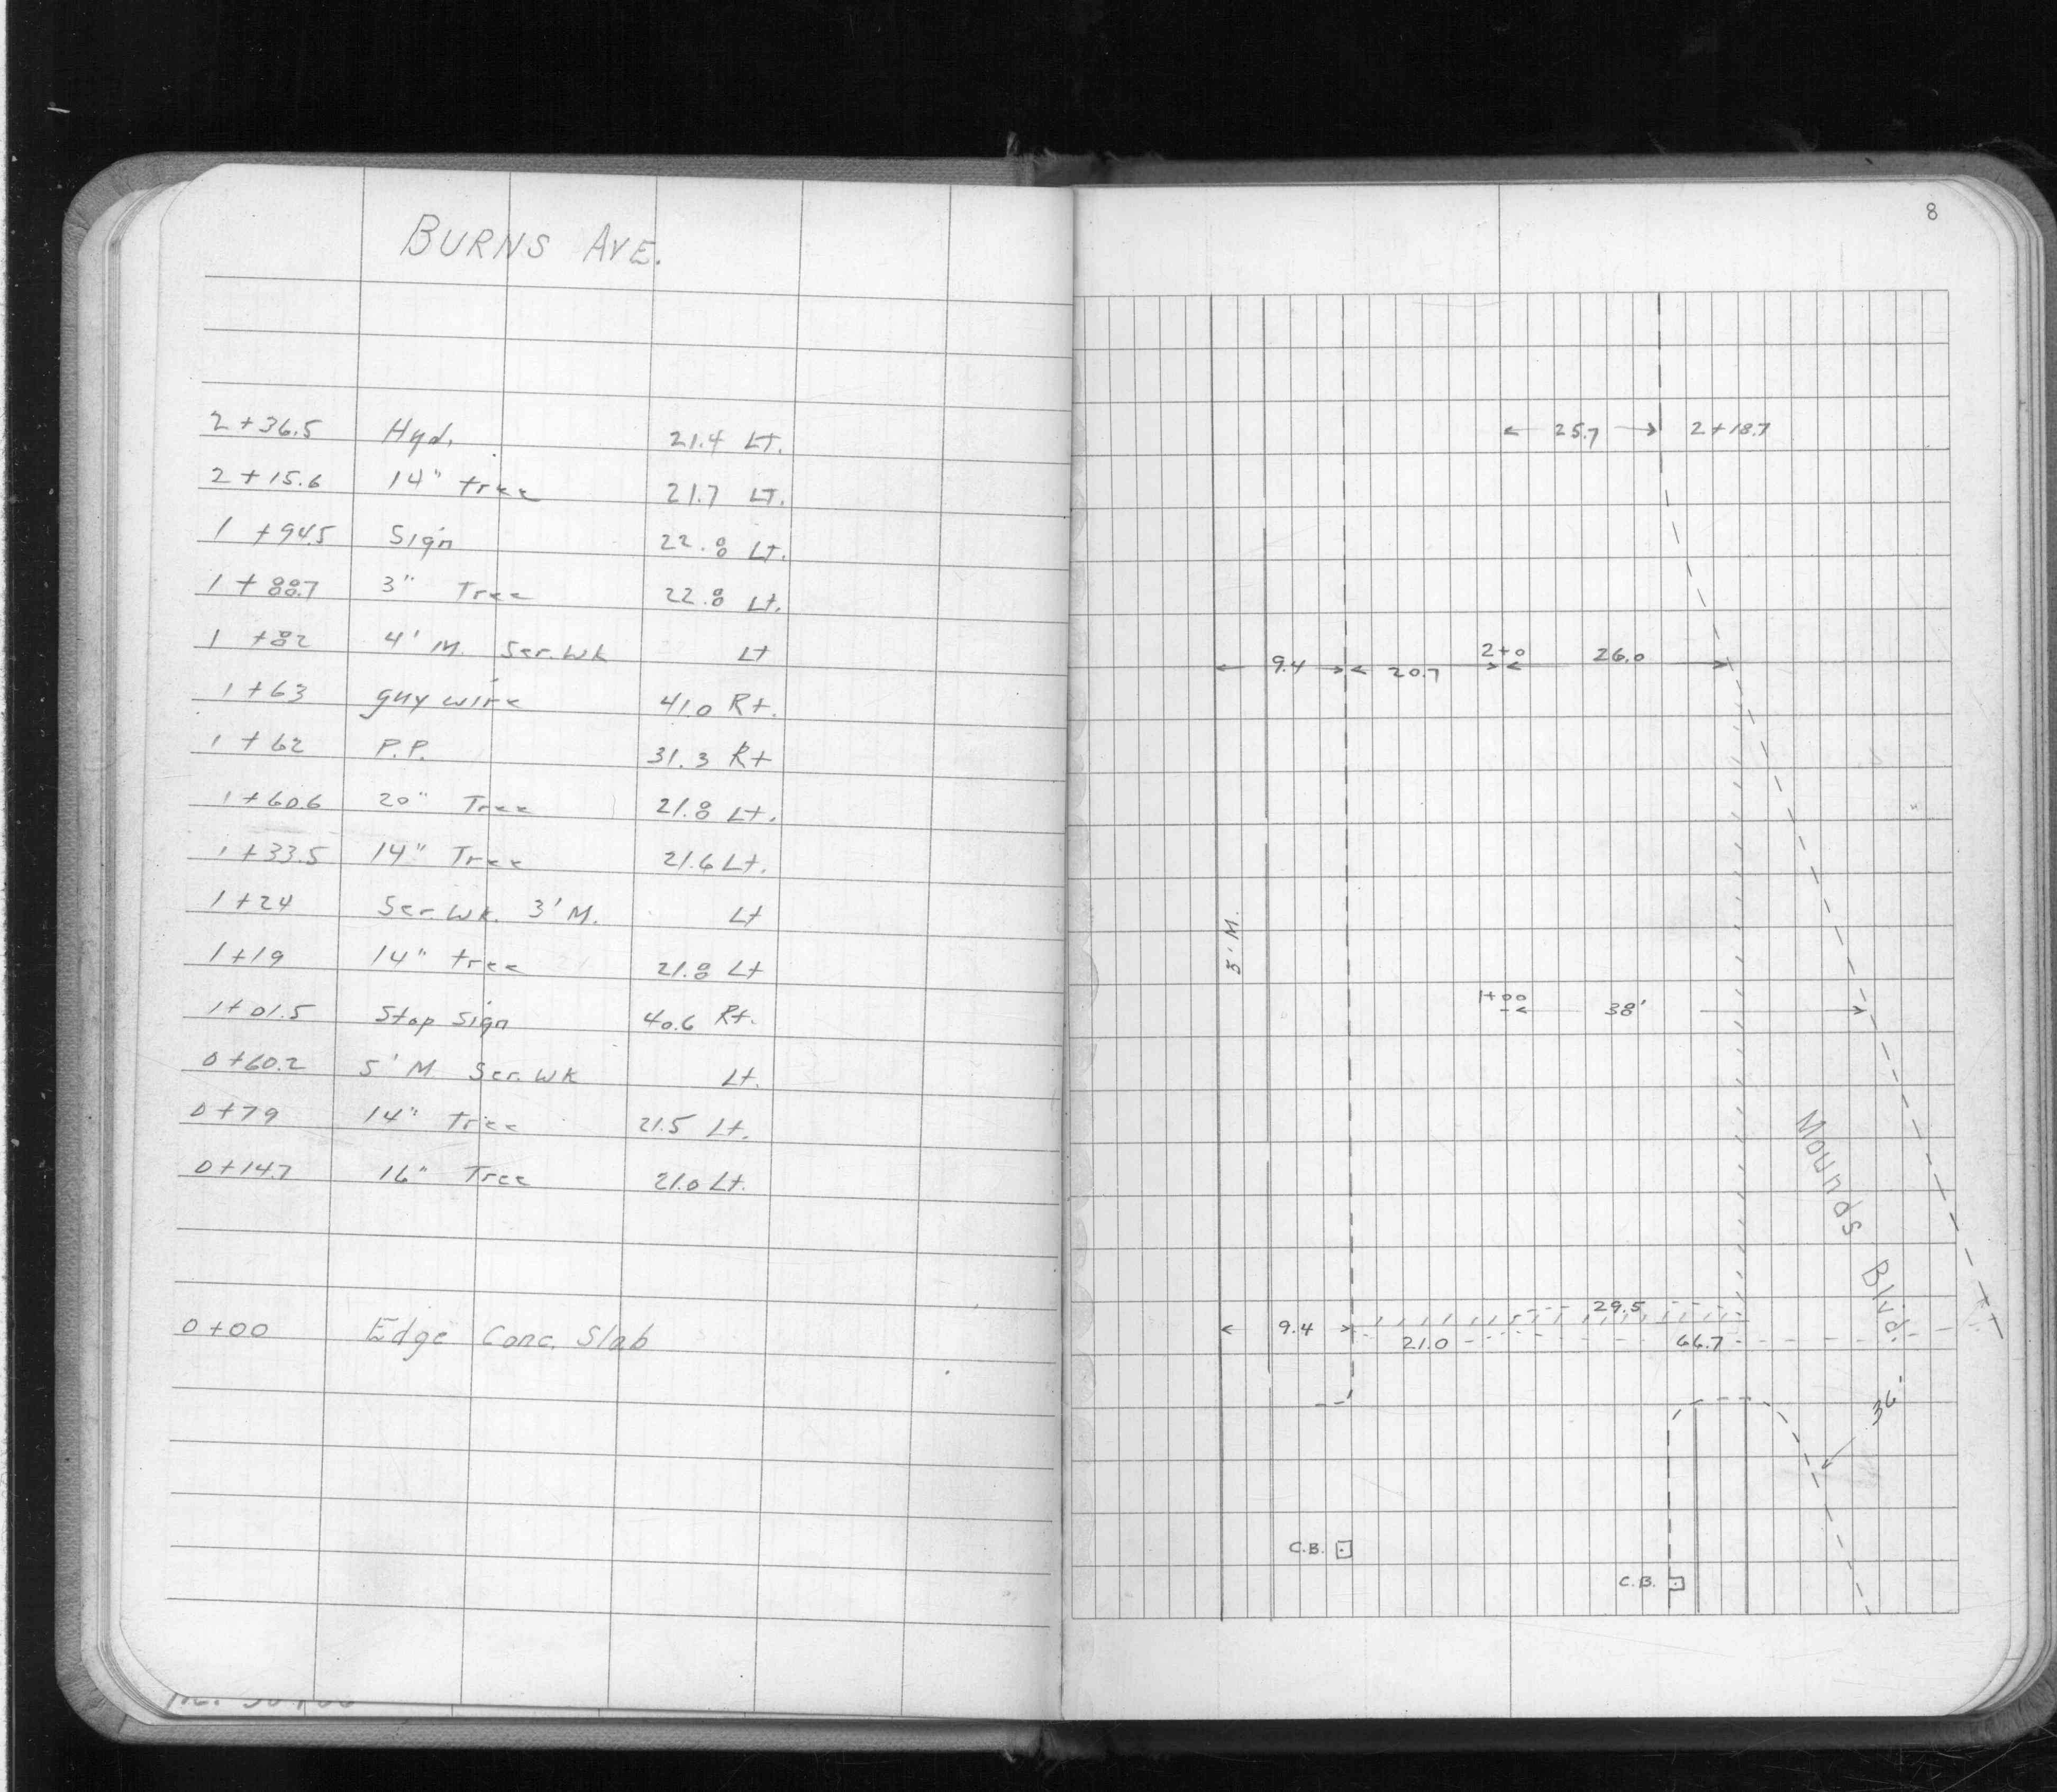 BURNS AVE.
2+36.5 Hyd. 21.4 Lt.
2+15.6 14" tree 21.7 Lt.
1+94.5 Sign 22.8 Lt.
1+88.7 3" Tree 22.8 Lt.
1+82 4' M. Ser. Wk Lt
1+63 guy wire 41.0 Rt.
1+62 P.P. 31.3 Rt
1+60.6 20" Tree 21.8 Lt.
1+33.5 14" Tree 21.6 Lt.
1+24 Ser. Wk. 3' M. Lt
1+19 14" tree 21.8 Lt
1+01.5 Stop Sign 40.6 Rt.
0+60.2 5' M Ser. Wk Lt.
0+79 14" Tree 21.5 Lt.
0+14.7 16" Tree 21.0 Lt.
0+00 Edge Conc. Slab
8
25.7 2+18.7
2+0
9.4 20.7 26.0
5' M.
1+00
38'
Mounds Blvd.
29.5
9.4
21.0 66.7
36'
C.B.
C.B.